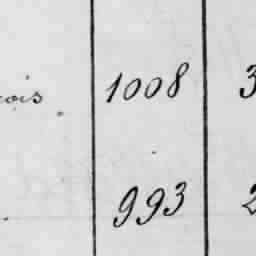 ois 1008 3
993 2